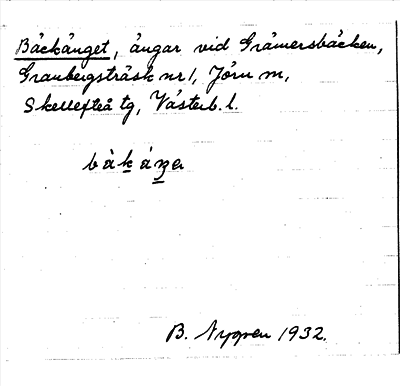 Bäckänget, ängar vid Grämersbäcken,
Granbergsträsk nr 1, Jörn m,
Skellefteå tg, Västerb. l.
B. Nygren 1932.